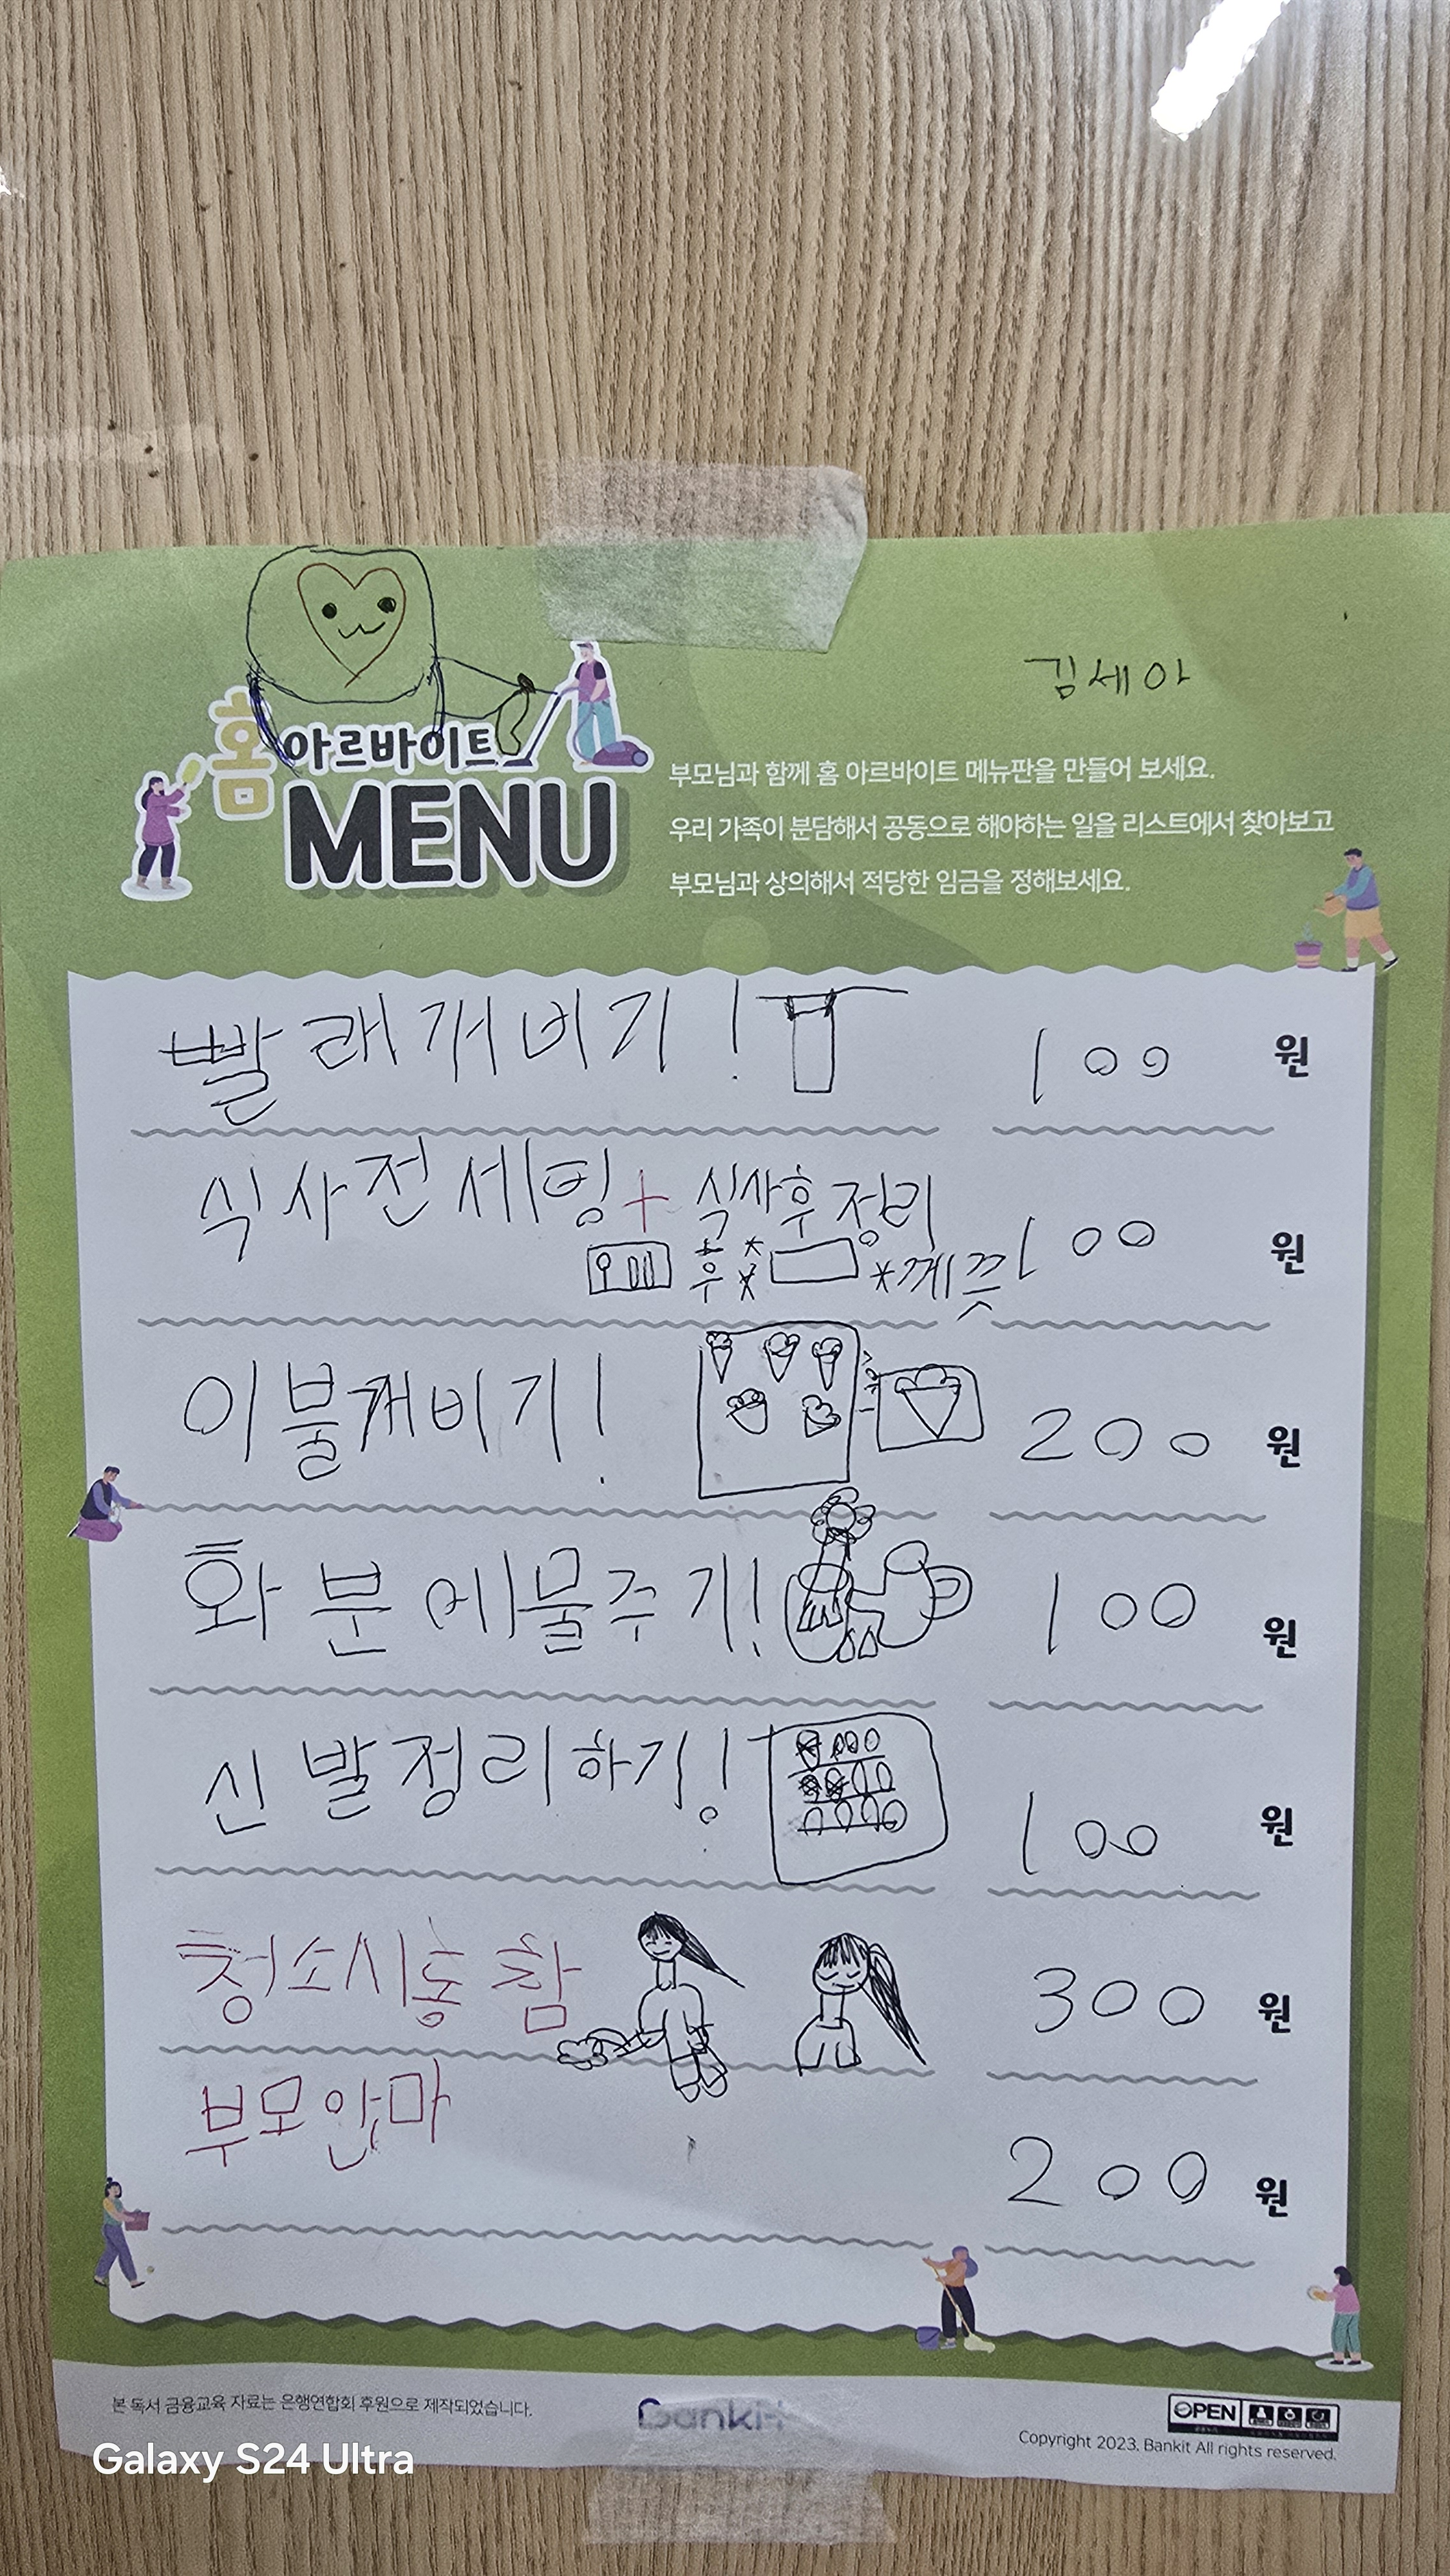 김세아
홈 아르바이트
MENU
부모님과 함께 홈 아르바이트 메뉴판을 만들어 보세요.
우리 가족이 분담해서 공동으로 해야하는 일을 리스트에서 찾아보고
부모님과 상의해서 적당한 임금을 정해보세요.
빨래개비기! 100 원
식사전세팅+식사후정리 100 원
후 * * *깨끗
이불개비기! 200 원
화분에물주기! 100 원
신발정리하기! 100 원
청소시동참 300 원
부모안마 200 원
본 독서 금융교육 자료는 은행연합회 후원으로 제작되었습니다.
BankIt
OPEN
Copyright 2023. Bankit All rights reserved.
Galaxy S24 Ultra